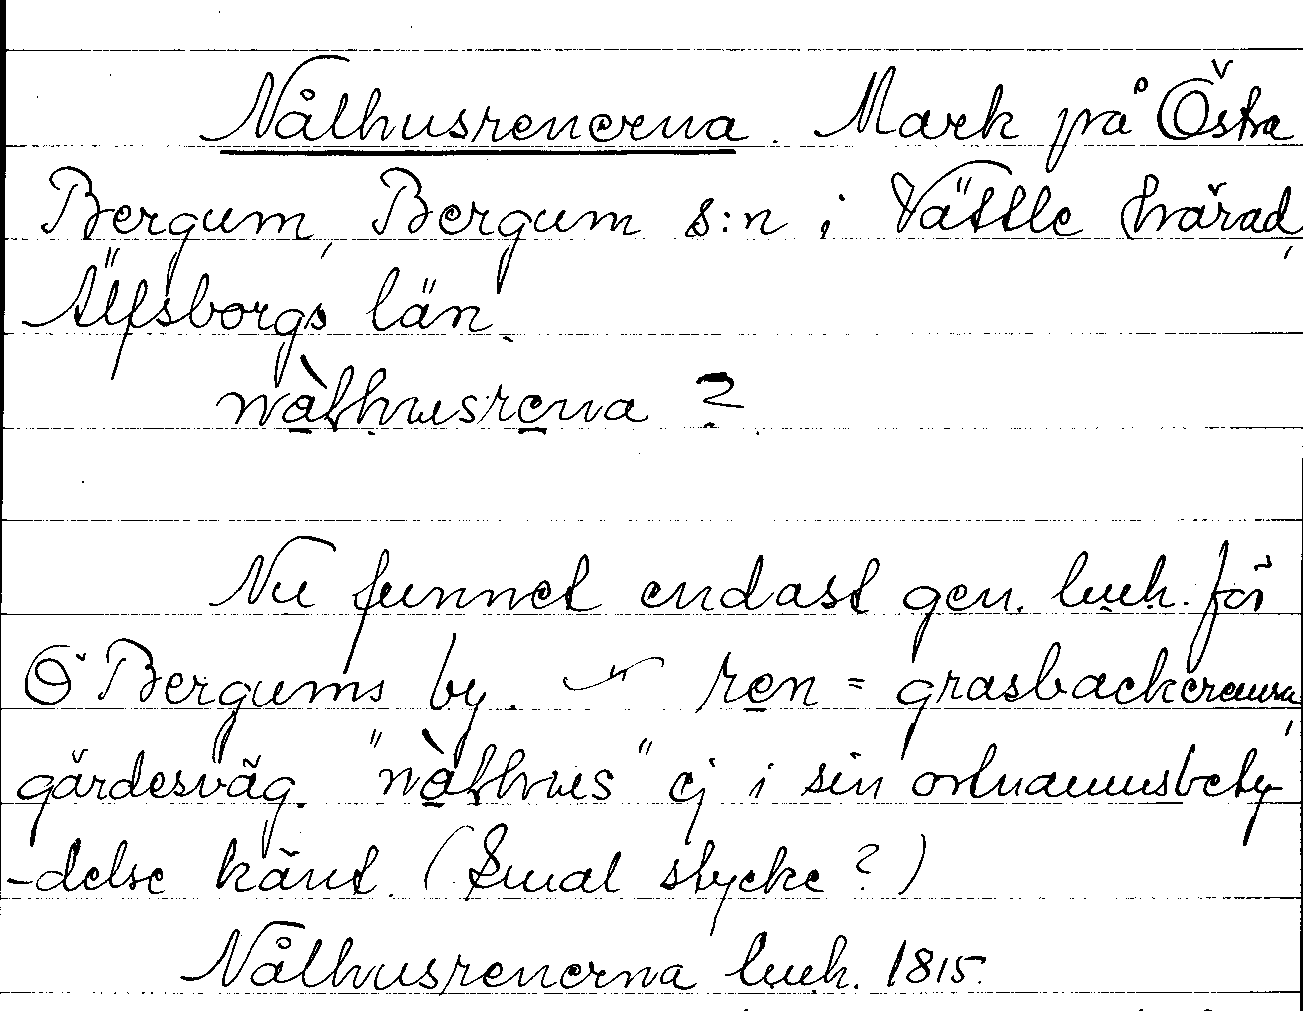 Nålhusrenerna. Mark på Östra
Bergum, Bergum s:n i Vättle härad,
Älfsborgs län.
nàlhusrena ?
Nu funnet endast gen. lmh. för
Ö Bergums by. ren = grasbackerensa,
gärdesväg. "nàlhus" ej i sin ortnamnsbety
-delse känt. (Smal stycke ?)
Nålhusrenerna lmh. 1815.